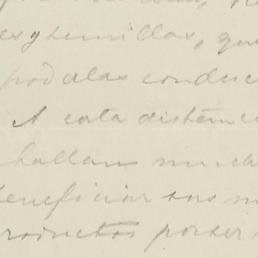 es y semillas, que
podalas conduc
A cata distanc
hallan much
beneficiar sus m
productos poder